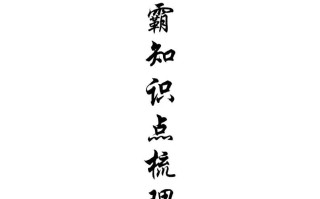 霸知识点梳理